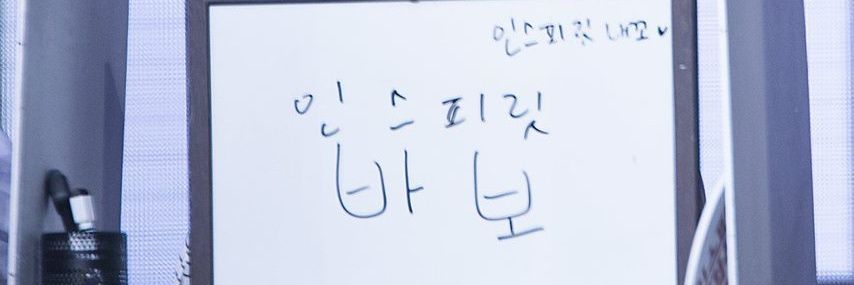 인스피릿 내꼬♥
인스피릿
바보